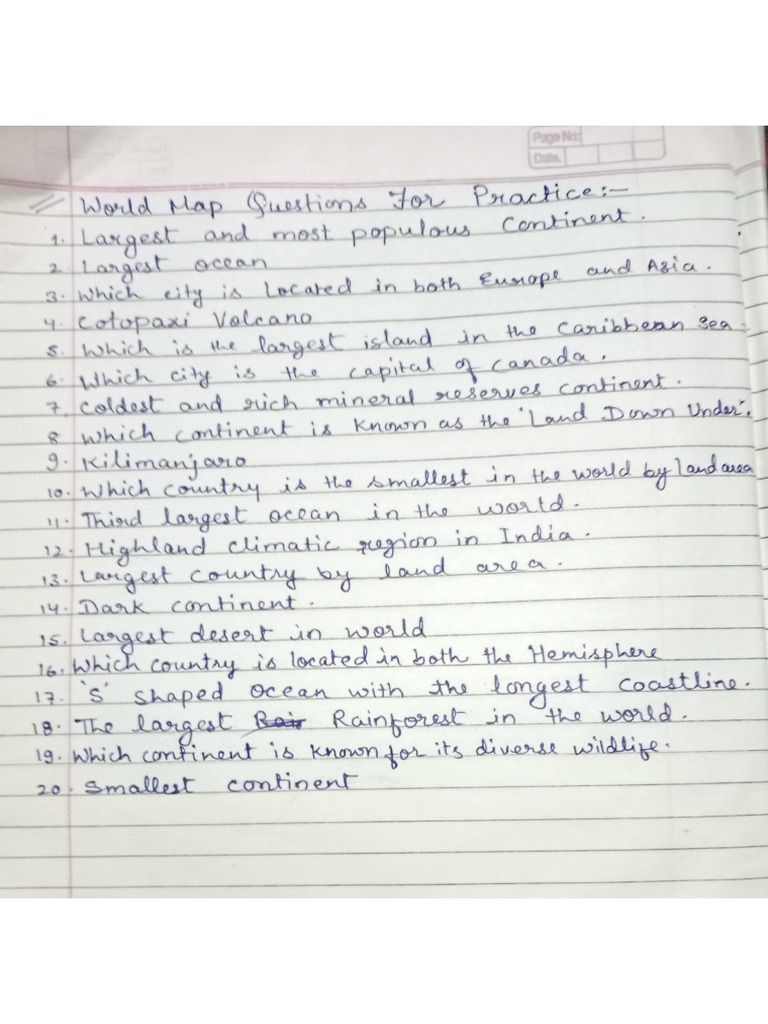 Page No:
Date.
World Map Questions For Practice:-
1. Largest and most populous continent.
2. Largest ocean
3. Which city is Located in both Europe and Asia.
4. Cotopaxi Volcano
5. Which is the largest island in the Caribbean Sea.
6. Which city is the capital of Canada.
7. Coldest and rich mineral reserves continent.
8 Which continent is known as the 'Land Down Under'.
9. Kilimanjaro
10. Which country is the smallest in the world by land area
11. Third largest ocean in the world.
12. Highland climatic region in India.
13. Largest country by land area.
14. Dark continent.
15. Largest desert in world
16. Which country is located in both the Hemisphere
17. 'S' shaped ocean with the longest coastline.
18. The largest Rainforest in the world.
19. Which continent is known for its diverse wildlife.
20. Smallest continent